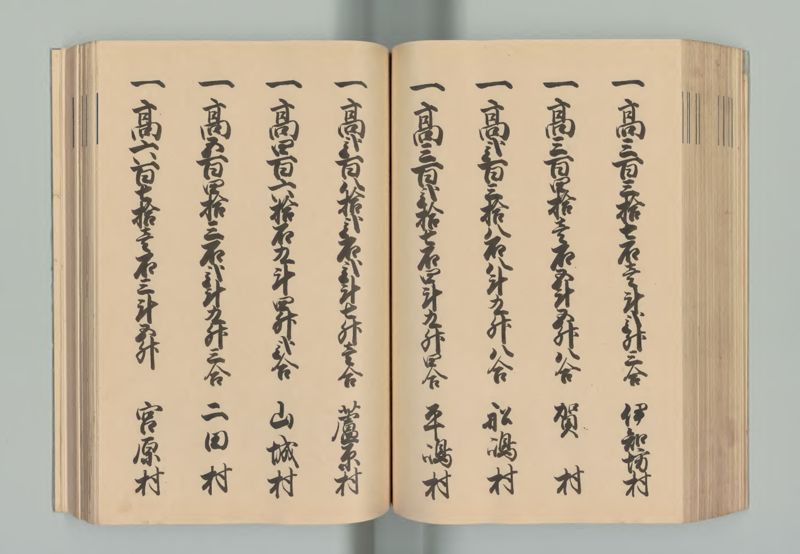 一高三百三拾七石壱斗弐升三合 伊知坊村
一高三百四拾壱石五斗五升八合 賀村
一高弐百三拾八石八斗九升八合 船嶋村
一高三百弐拾七石四斗九升四合 平嶋村
一高弐百八拾弐石弐斗七升壱合 蘆原村
一高四百六拾石九斗四升弐合 山城村
一高五百四拾三石弐斗九升三合 二田村
一高六百七拾壱石三斗五升 宮原村